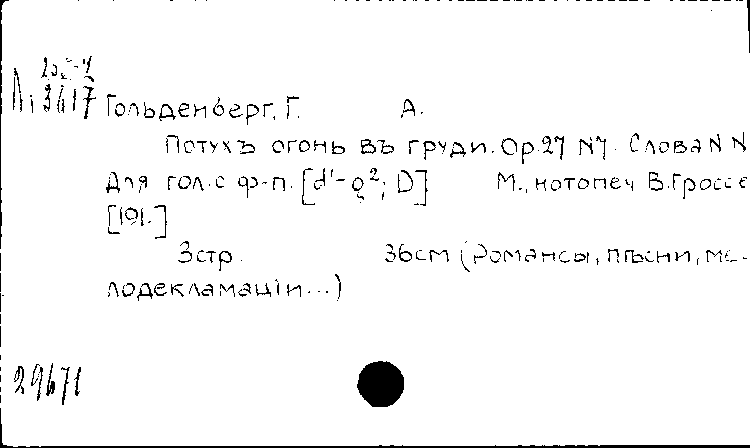 Л1 3617
Гольденберг, Г. А.
Потухъ огонь въ груди. Ор.27 N7. Слова N N
Для гол. с ф-п. [d¹-g²; D] М., нотопеч В.Гроссе
[191.]
3стр. 36см (Романсы, пѣсни, ме-
лодекламаціи...)
29671